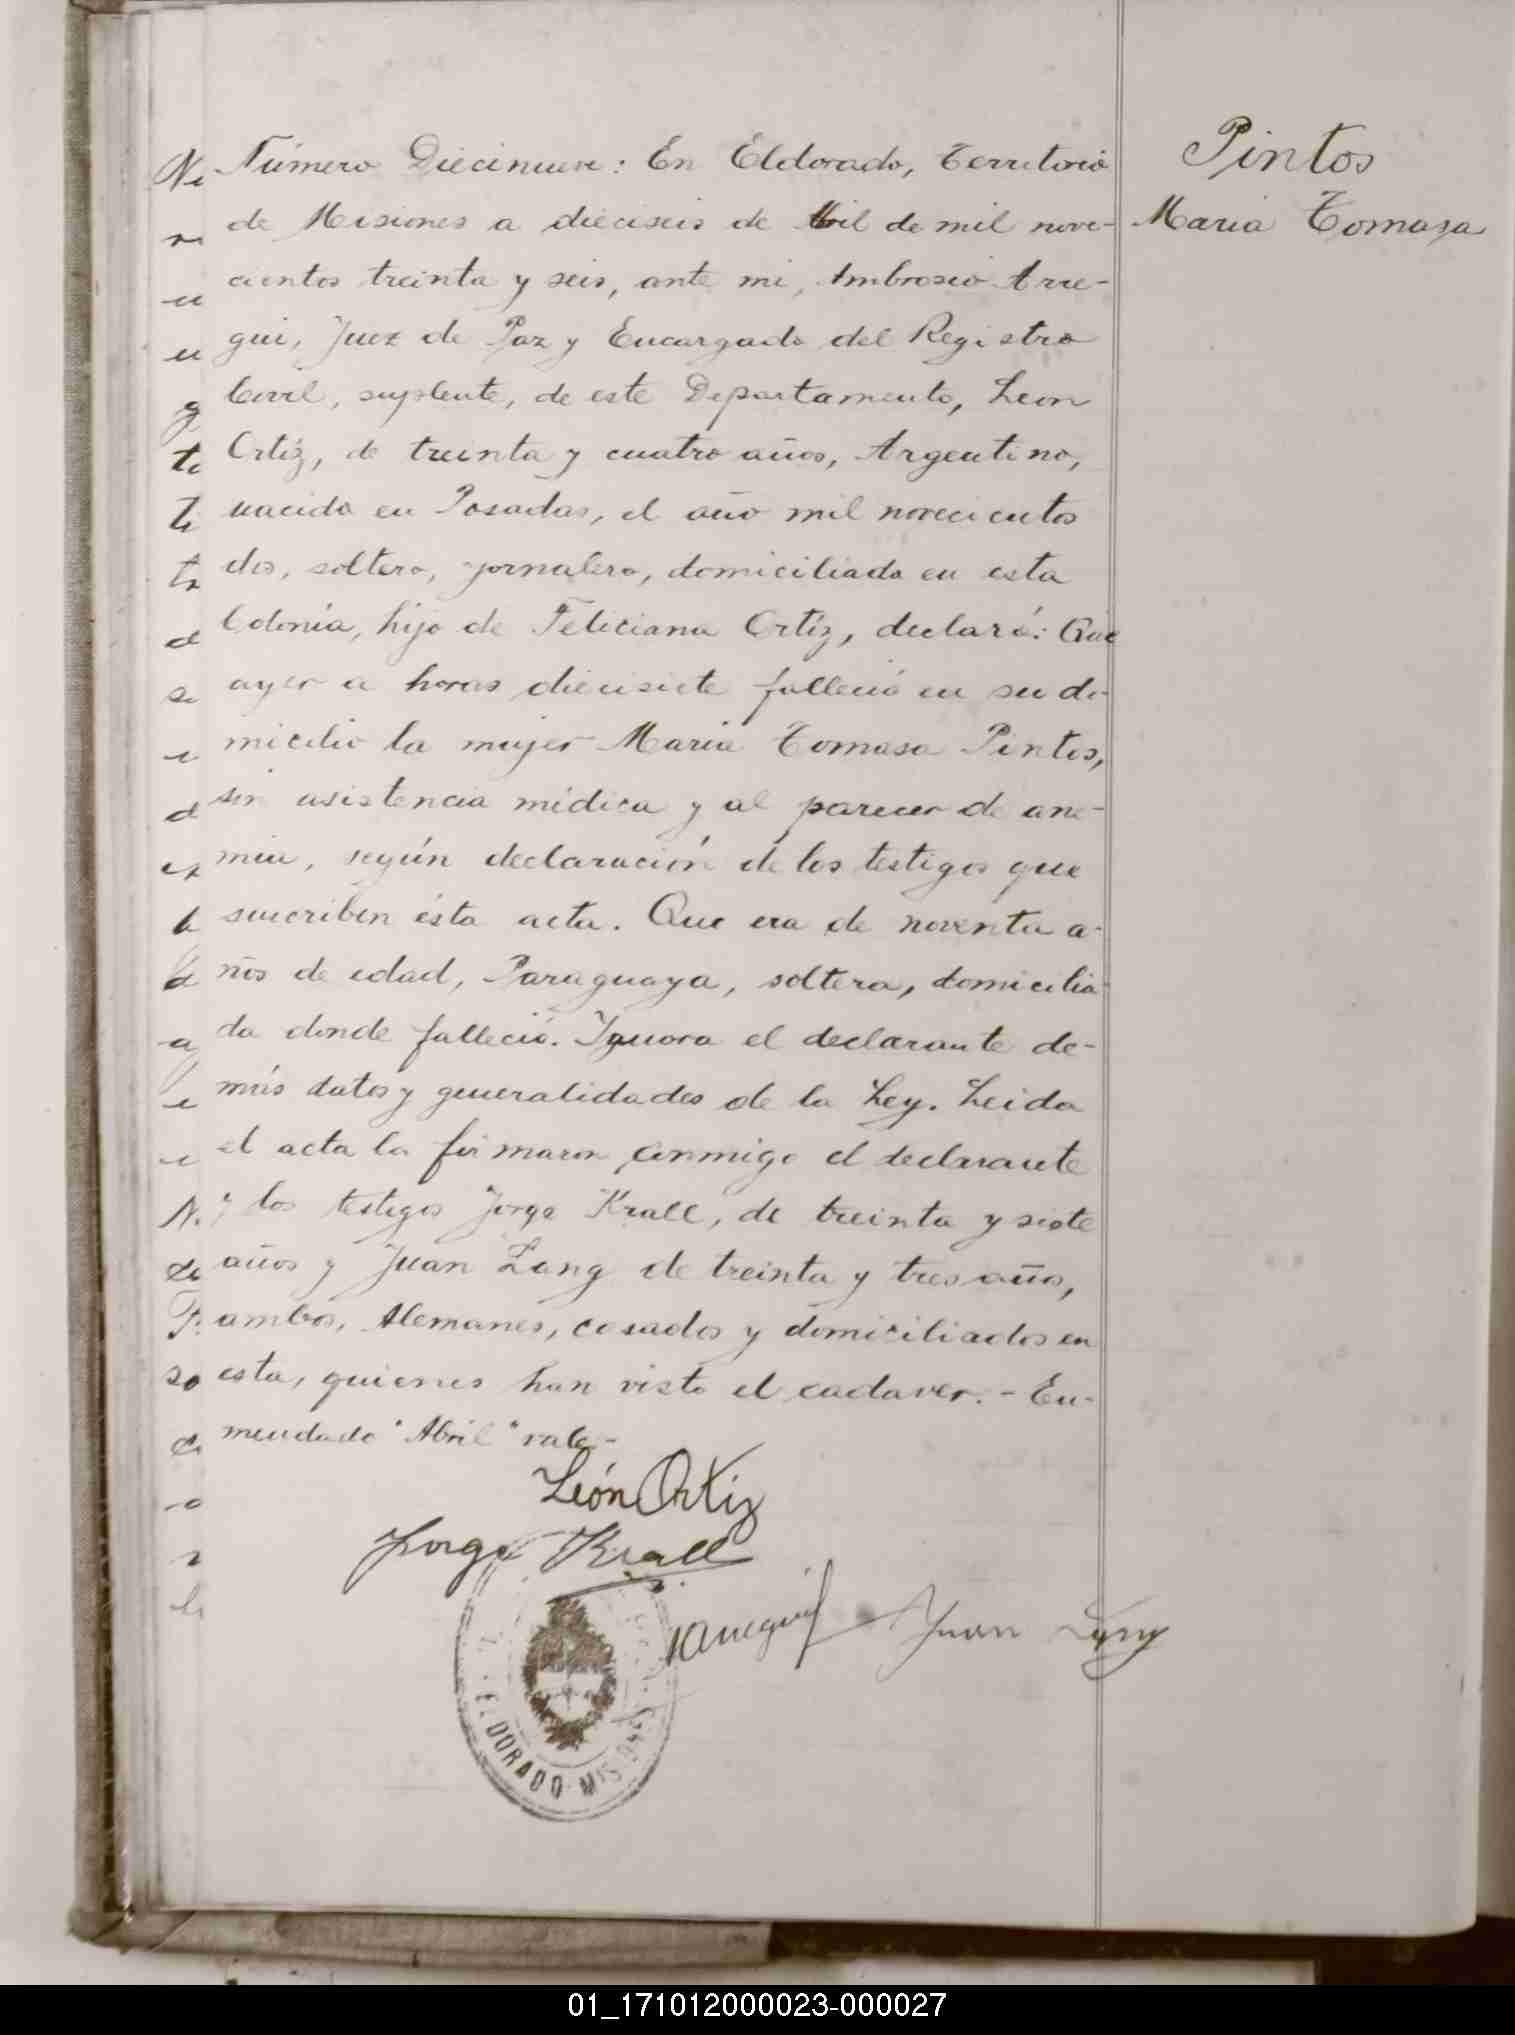 Número Diecinueve: En Eldorado, Territorio
de Misiones a dieciseis de Abril de mil nove-
cientos treinta y seis, ante mi, Ambrosio Arre-
gui, Juez de Paz y Encargado del Registro
Civil, suplente, de este Departamento, Leon
Ortiz, de treinta y cuatro años, Argentino,
nacido en Posadas, el año mil novecientos
dos, soltero, jornalero, domiciliado en esta
Colonia, hijo de Feliciana Ortiz, declaró: Que
ayer a horas diecisiete falleció en su do-
micilio la mujer Maria Tomasa Pintos,
sin asistencia médica y al parecer de ane-
mia, según declaración de los testigos que
suscriben ésta acta. Que era de noventa a-
ños de edad, Paraguaya, soltera, domicilia-
da donde falleció. Ignora el declarante de-
más datos y generalidades de la Ley. Leida
el acta la firmaron conmigo el declarante
y los testigos Jorge Krall, de treinta y siete
años y Juan Lang de treinta y tres años,
ambos, Alemanes, casados y domiciliados en
esta, quienes han visto el cadaver. - En-
mendado "Abril" vale.-
León Ortiz
Jorge Krall
AArregui
Juan Lang
ELDORADO - MISIONES
Pintos
Maria Tomasa
01_171012000023-000027